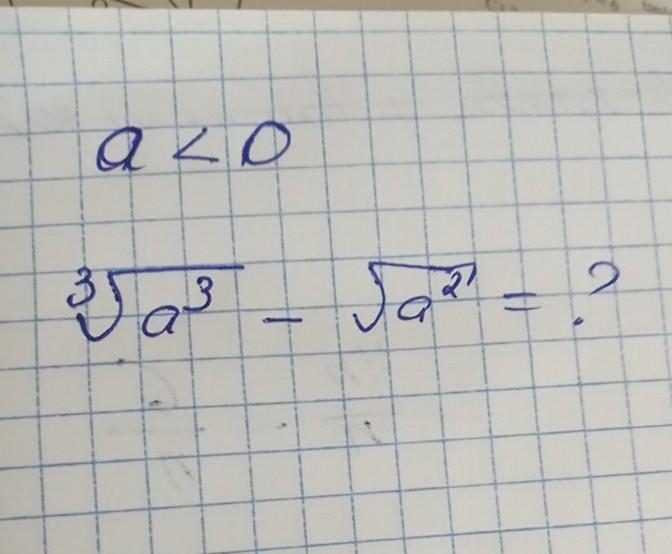 a < 0
∛a³ − √a² = ?